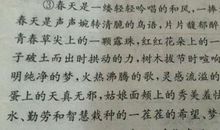 ③春天是一缕轻轻吟唱的和风,一捧
春天是声声婉转清脆的鸟语,片片馥郁醉
青春草尖上的一颗露珠,红红花朵上的一
子破土而出时拱动的力,树木拔节时喧响
明纯净的梦,火热沸腾的歌,灵感流溢的
蛋上的天真无邪,姑娘面颊上的秀美羞怯
水、勤劳和智慧栽种的一茬茬的希望、梦